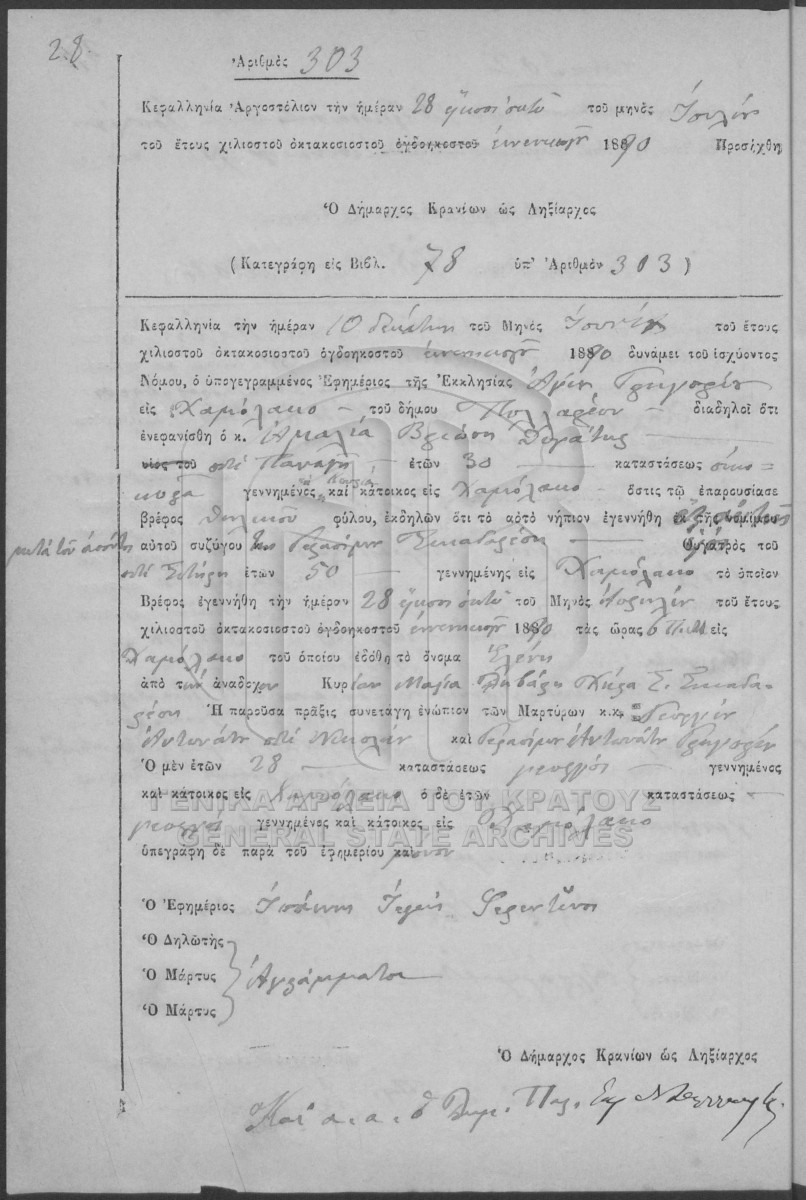 28.
Ἀριθμὸς 303
Κεφαλληνία Ἀργοστόλιον τὴν ἡμέραν 28 εἴκοσι ὀκτὼ τοῦ μηνὸς Ἰουλίου
τοῦ ἔτους χιλιοστοῦ ὀκτακοσιοστοῦ ὀγδοηκοστοῦ ἐννενηκοστοῦ 1890 Προσήχθη
Ὁ Δήμαρχος Κρανίων ὡς Ληξίαρχος
(Κατεγράφη εἰς Βιβλ. 78 ὑπ' Ἀριθμὸν 303)
Κεφαλληνία τὴν ἡμέραν 10 δεκάτην τοῦ Μηνὸς τοῦ ἔτους
χιλιοστοῦ ὀκτακοσιοστοῦ ὀγδοηκοστοῦ ἐννενηκοστοῦ 1890 δυνάμει τοῦ ἰσχύοντος
Νόμου, ὁ ὑπογεγραμμένος Ἐφημέριος τῆς Ἐκκλησίας Ἁγίου Γρηγορίου
εἰς Χαμόλακο τοῦ δήμου διαδηλοῖ ὅτι
ἐνεφανίσθη ὁ κ. Ἀμαλία Θυγάτηρ
υἱὸς τοῦ ποτὲ Παναγῆ ἐτῶν 30 καταστάσεως οἰκο-
κυρὰ γεννημένος καὶ κάτοικος εἰς Χαμόλακο ὅστις τῷ ἐπαρουσίασε
βρέφος θηλυκοῦ φύλου, ἐκδηλῶν ὅτι τὸ αὐτὸ νήπιον ἐγεννήθη ἐκ τῆς νομίμου
μετὰ τοῦ
αὐτοῦ συζύγου της Γερασίμου Θυγατρὸς τοῦ
ποτὲ Σωτήρη ἐτῶν 50 γεννημένης εἰς Χαμόλακο τὸ ὁποῖον
Βρέφος ἐγεννήθη τὴν ἡμέραν 28 εἴκοσι ὀκτὼ τοῦ Μηνὸς Ἀπριλίου τοῦ ἔτους
χιλιοστοῦ ὀκτακοσιοστοῦ ὀγδοηκοστοῦ ἐννενηκοστοῦ 1890 τὰς ὥρας 6 π.μ. εἰς
Χαμόλακο τοῦ ὁποίου ἐδόθη τὸ ὄνομα Ἑλένη
ἀπὸ τὴν ἀνάδοχον Κυρίαν Μαρία Χήρα Σ.
Ἡ παροῦσα πρᾶξις συνετάγη ἐνώπιον τῶν Μαρτύρων κ.κ. Γεωργίου
Ἀντωνάτου ποτὲ Νικολάου καὶ Γερασίμου Ἀντωνάτου Γρηγορίου
Ὁ μὲν ἐτῶν 28 καταστάσεως γεωργὸς γεννημένος
καὶ κάτοικος εἰς Χαμόλακο ὁ δὲ ἐτῶν καταστάσεως
γεωργὸς γεννημένος καὶ κάτοικος εἰς Χαμόλακο
ὑπεγράφη δὲ παρὰ τοῦ ἐφημερίου καὶ μόνον
ΓΕΝΙΚΑ ΑΡΧΕΙΑ ΤΟΥ ΚΡΑΤΟΥΣ
GENERAL STATE ARCHIVES
Ὁ Ἐφημέριος Ἰωάννης Ἱερεὺς
Ὁ Δηλωτὴς
Ὁ Μάρτυς Ἀγράμματοι
Ὁ Μάρτυς
Ὁ Δήμαρχος Κρανίων ὡς Ληξίαρχος